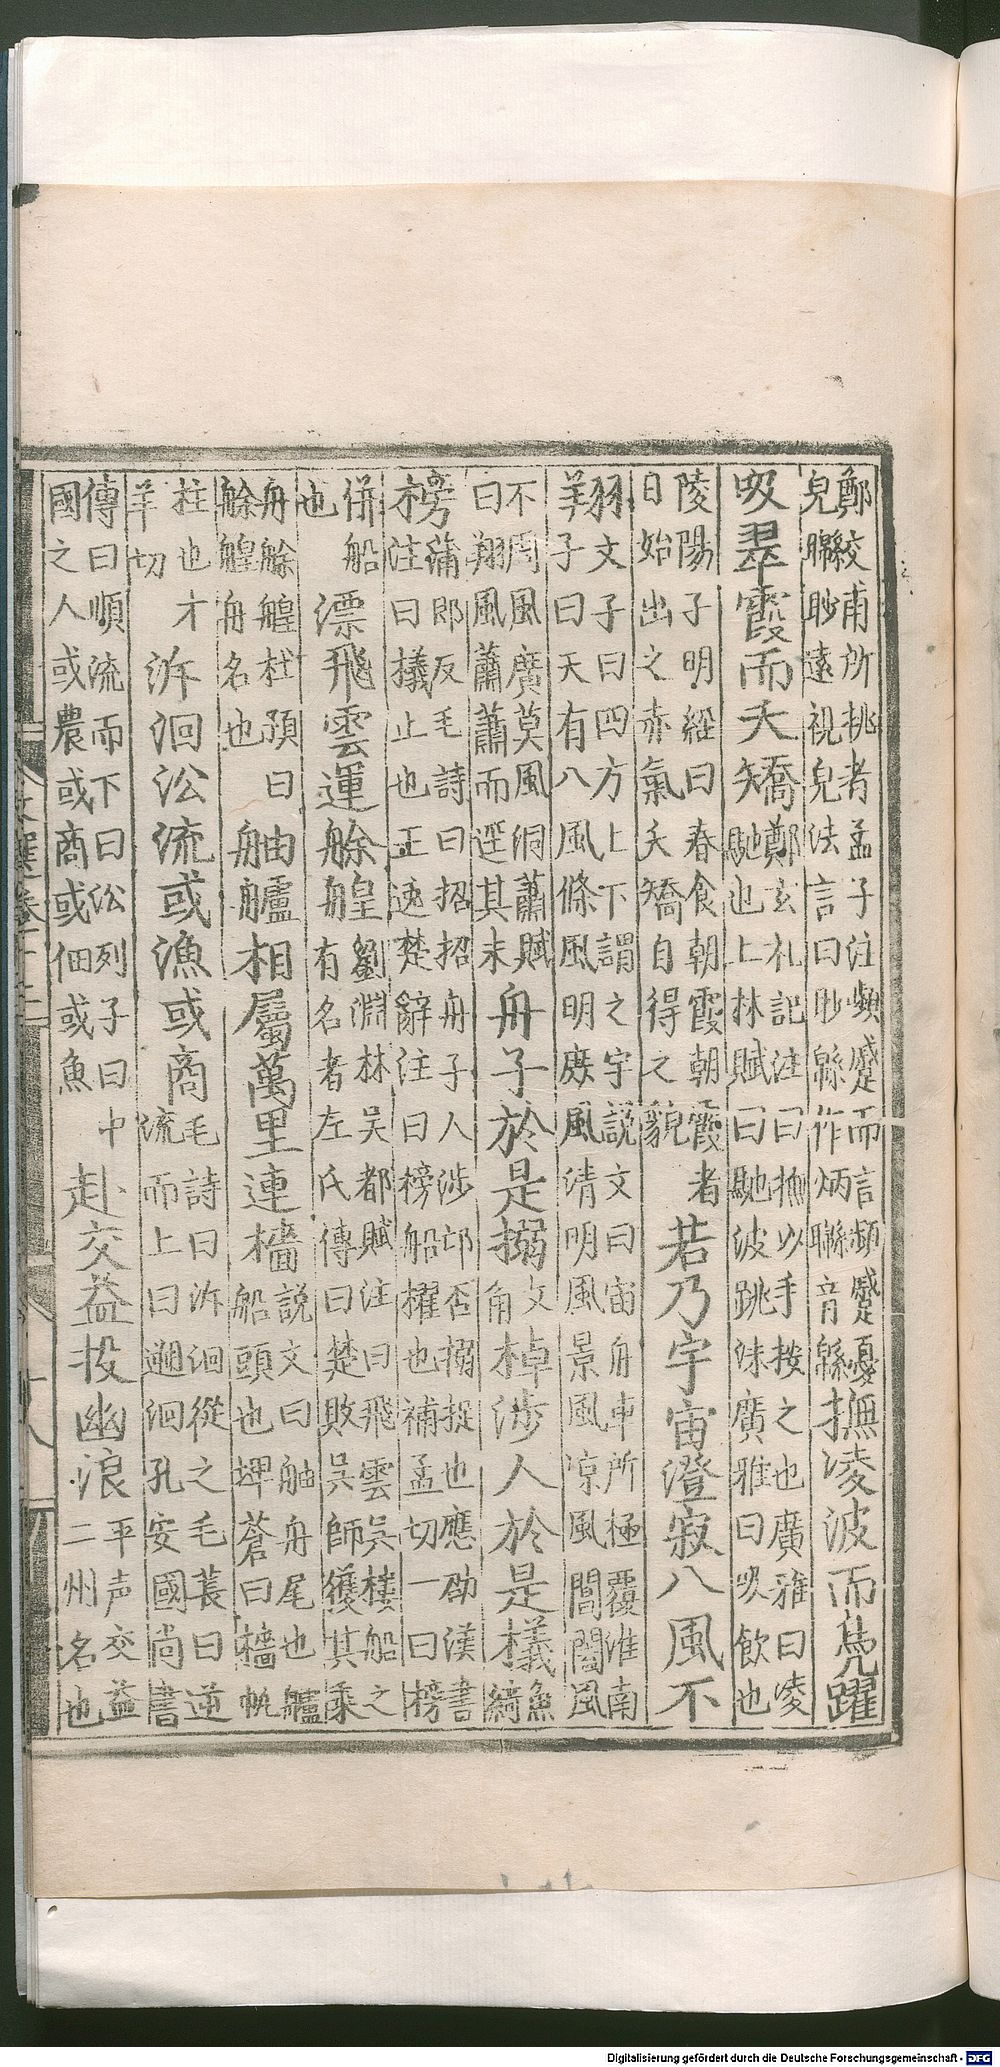 鄭絞甫所挑者孟子注頻蹙而言頻蹙憂皃聯眇遠視皃法言曰眇緜作炳聯音緜撫凌波而鳧躍
吸翠霞而夭矯鄭玄礼記注曰撫以手按之也廣雅曰凌馳也上林賦曰馳波跳沬廣雅曰吸飲也
陵陽子明經曰春食朝霞朝霞者日始出之赤氣夭矯自得之貌若乃宇宙澄寂八風不
翔文子曰四方上下謂之宇說文曰宙舟車所極覆淮南子曰天有八風條風明庶風清明風景風凉風閶闔風
不周風廣莫風洞蕭賦曰翔風蕭蕭而逕其末舟子於是搦女角棹涉人於是檥魚綺
榜蒲郎反毛詩曰招招舟子人涉卬否搦捉也應劭漢書注曰檥止也王逸楚辭注曰榜船櫂也補孟切一曰榜
併船也漂飛雲運艅艎劉淵林吳都賦注曰飛雲吳樓船之有名者左氏傳曰楚敗吳師獲其乘
舟艅艎杜預曰艅艎舟名也舳艫相屬萬里連檣說文曰舳舟尾也艫船頭也埤蒼曰檣帆
柱也才羊切泝洄沿流或漁或商毛詩曰泝洄從之毛萇曰逆流而上曰遡洄孔安國尚書
傳曰順流而下曰沿列子曰中國之人或農或商或佃或魚赴交益投幽浪平声交益二州名也
文選卷十二
十八
Digitalisierung gefördert durch die Deutsche Forschungsgemeinschaft - DFG